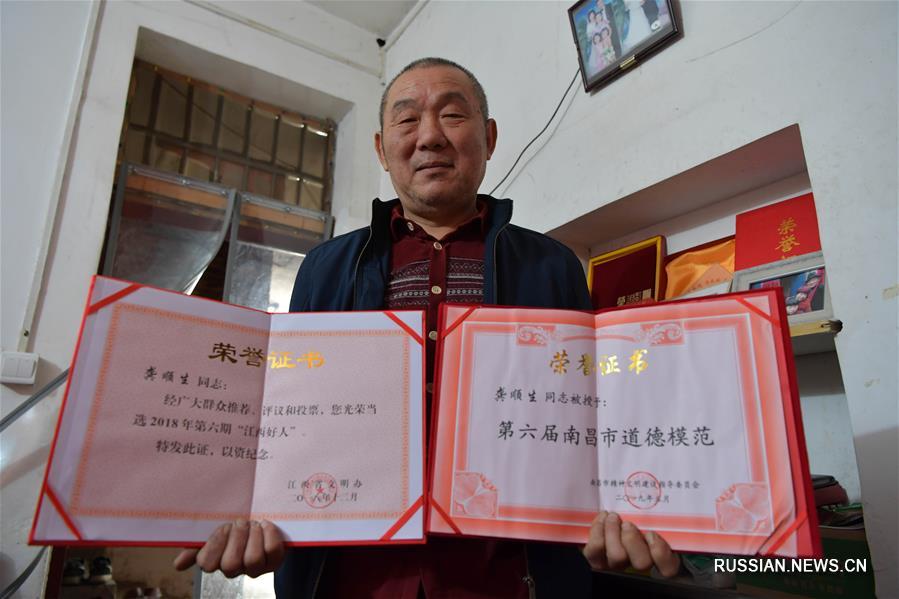 荣誉证书
龚顺生 同志：
经广大群众推荐、评议和投票，您光荣当
选 2018 年第六期“江西好人”。
特发此证，以资纪念。
江西省文明办
二〇一八年十二月
荣誉证书
龚顺生 同志被授予：
第六届南昌市道德模范
南昌市精神文明建设指导委员会
二〇一九年
荣誉
RUSSIAN.NEWS.CN